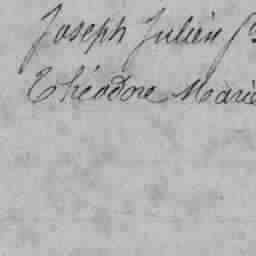 Joseph Julien
Théodore Marie